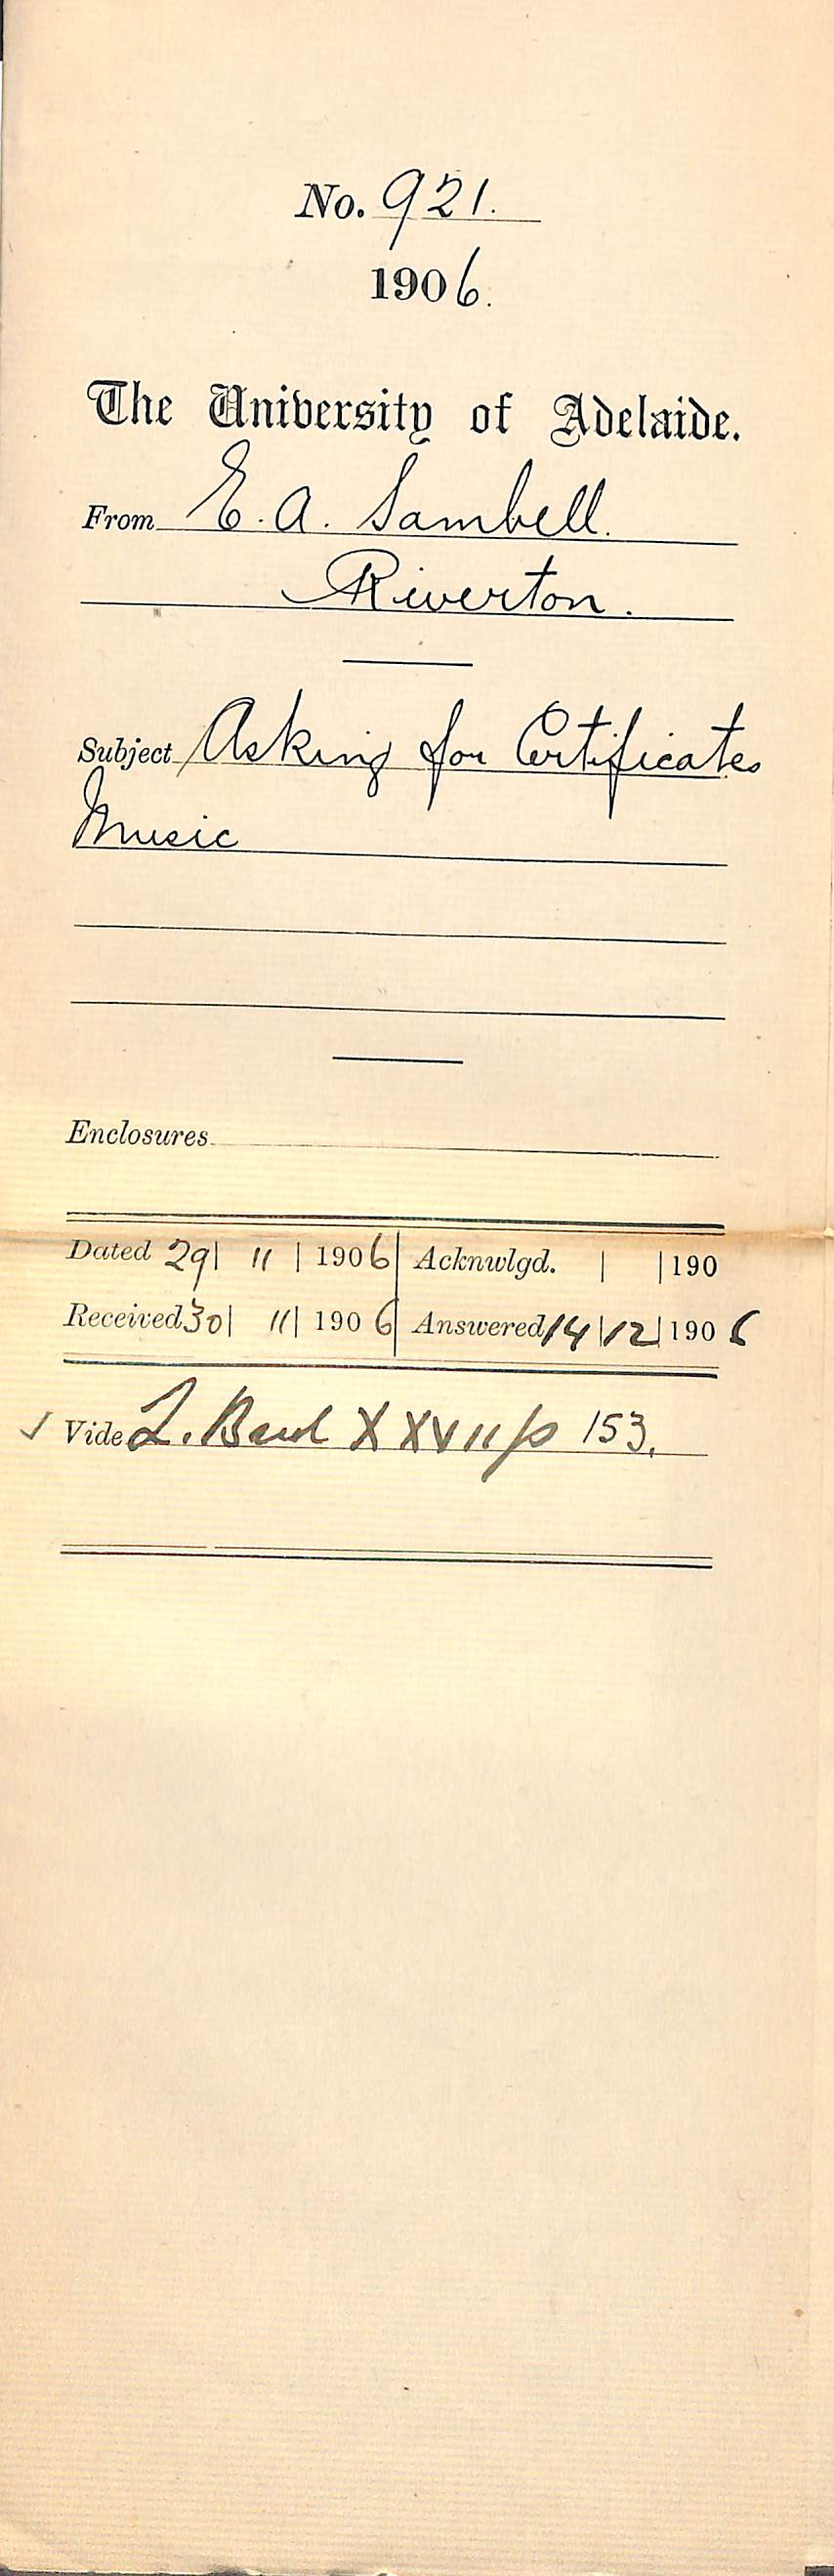 No. 921.
1906.
The University of Adelaide.
From E. A. Sambell.
Riverton.
Subject Asking for Certificates
Music
Enclosures
Dated 29| 11 | 1906 | Acknwlgd. | |190
Received 30| 11| 1906 | Answered 14|12|1906
✓ Vide L. XXVII p 153.